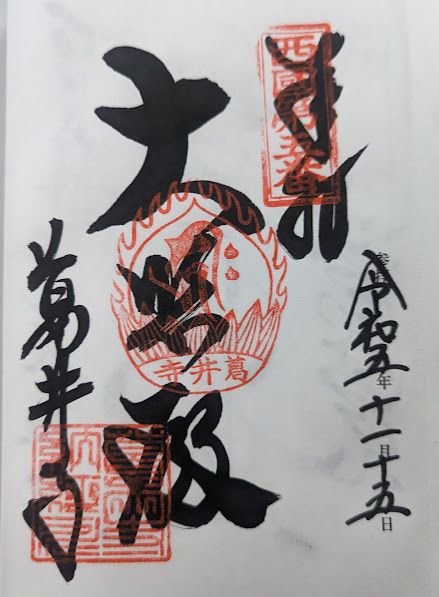 奉拝
西國第五番
令和五年十一月十五日
大悲殿
葛井寺
葛井寺